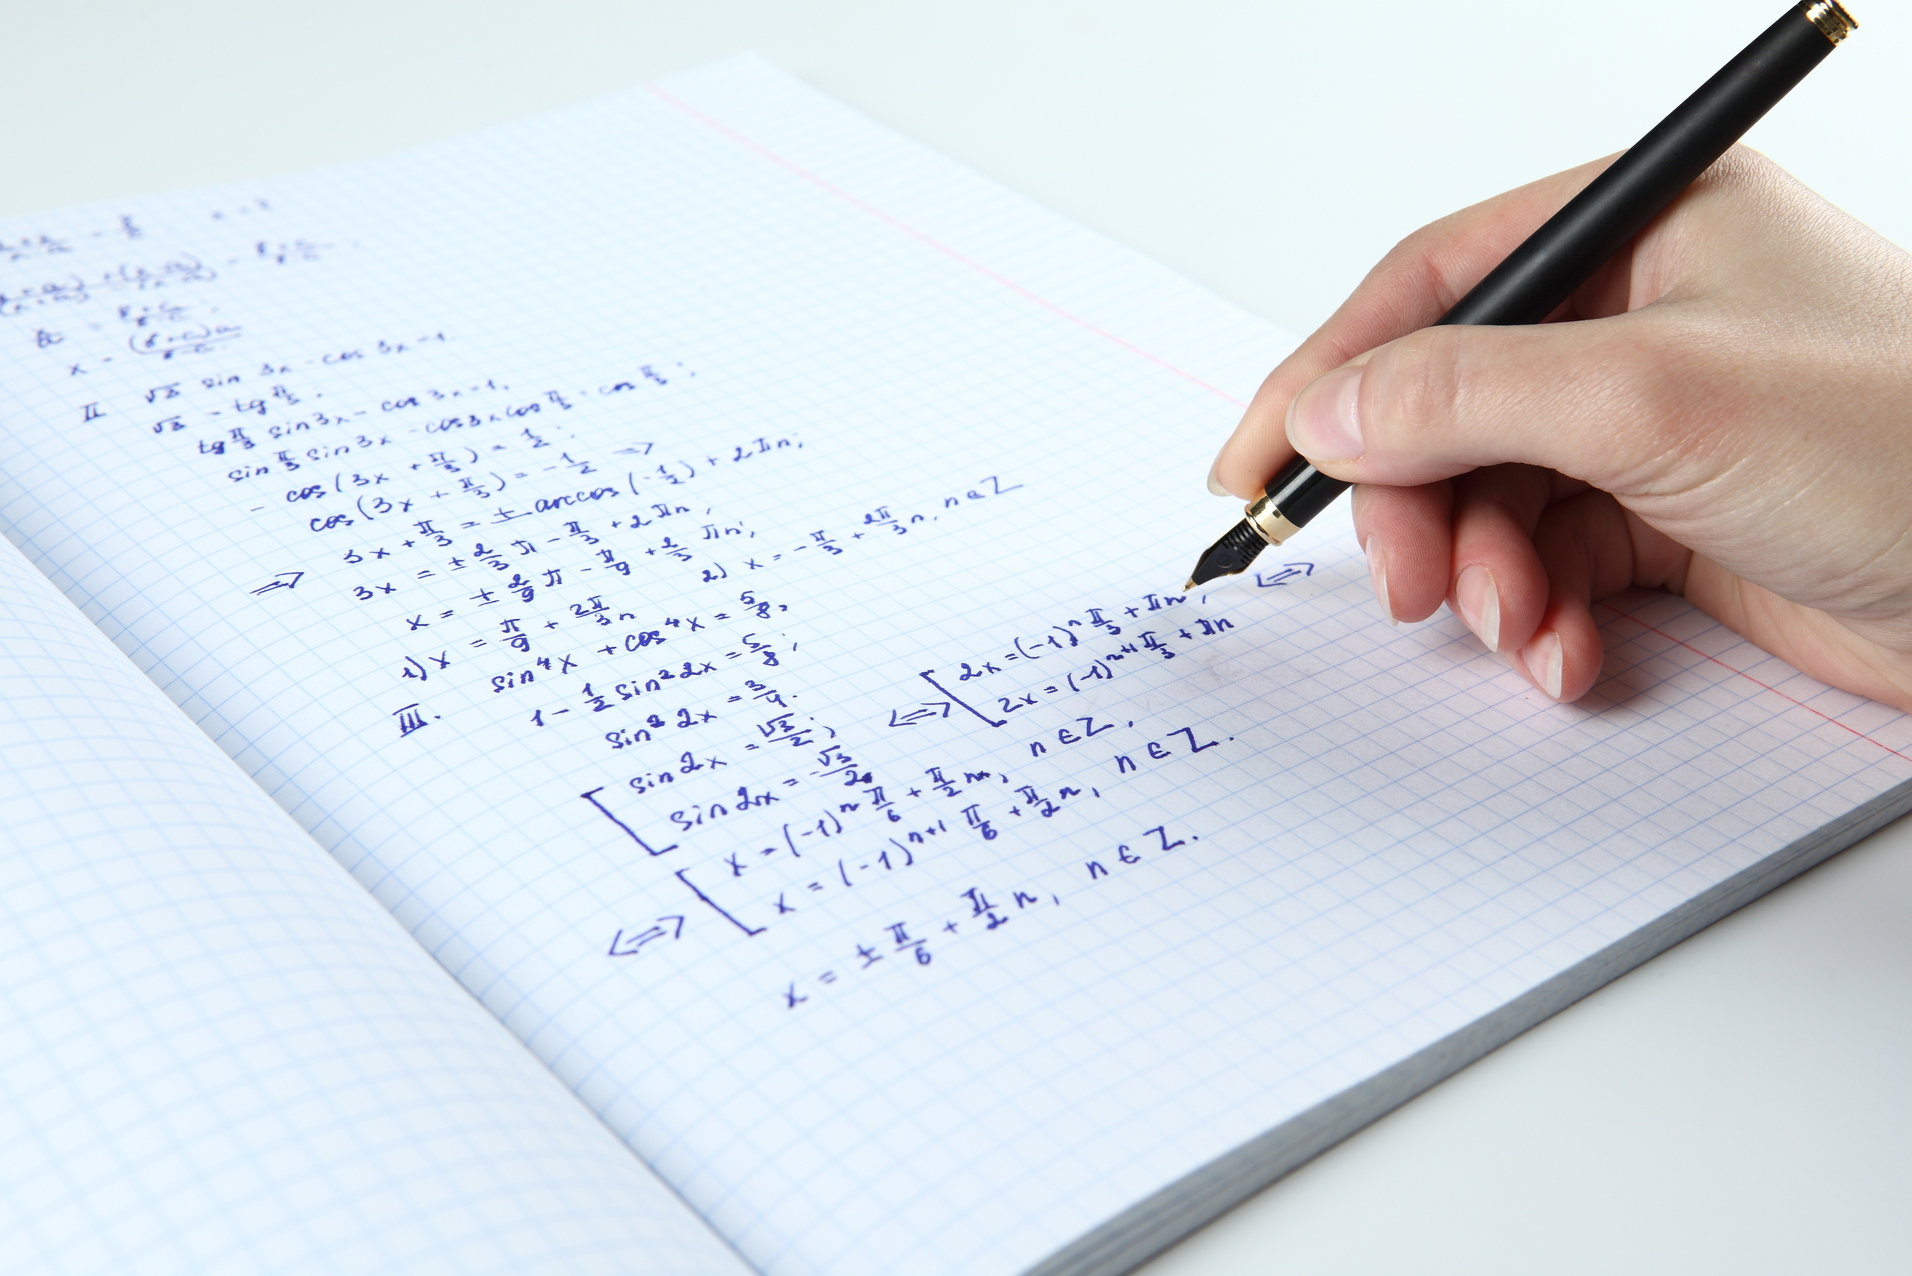 x = (b+c)a/b-c
II √3 sin 3x - cos 3x = 1.
√3 = tg π/3 ;
tg π/3 sin 3x - cos 3x = 1,
sin π/3 sin 3x - cos 3x cos π/3 = cos π/3 ;
- cos (3x + π/3) = 1/2 ;
cos (3x + π/3) = - 1/2 =>
=> 3x + π/3 = ± arccos (-1/2) + 2πn;
3x = ± 2/3 π - π/3 + 2πn,
x = ± 2/9 π - π/9 + 2/3 πn;
1) x = π/9 + 2π/3 n 2) x = - π/3 + 2π/3 n, n ∈ Z
III. sin⁴x + cos⁴x = 5/8,
1 - 1/2 sin² 2x = 5/8 ;
sin² 2x = 3/4.
[ sin 2x = √3/2 ;
sin 2x = - √3/2.
<=> [ 2x = (-1)ⁿ π/3 + πn, <=>
2x = (-1)ⁿ⁺¹ π/3 + πn
<=> [ x = (-1)ⁿ π/6 + π/2 n, n ∈ Z,
x = (-1)ⁿ⁺¹ π/6 + π/2 n, n ∈ Z.
x = ± π/6 + π/2 n, n ∈ Z.